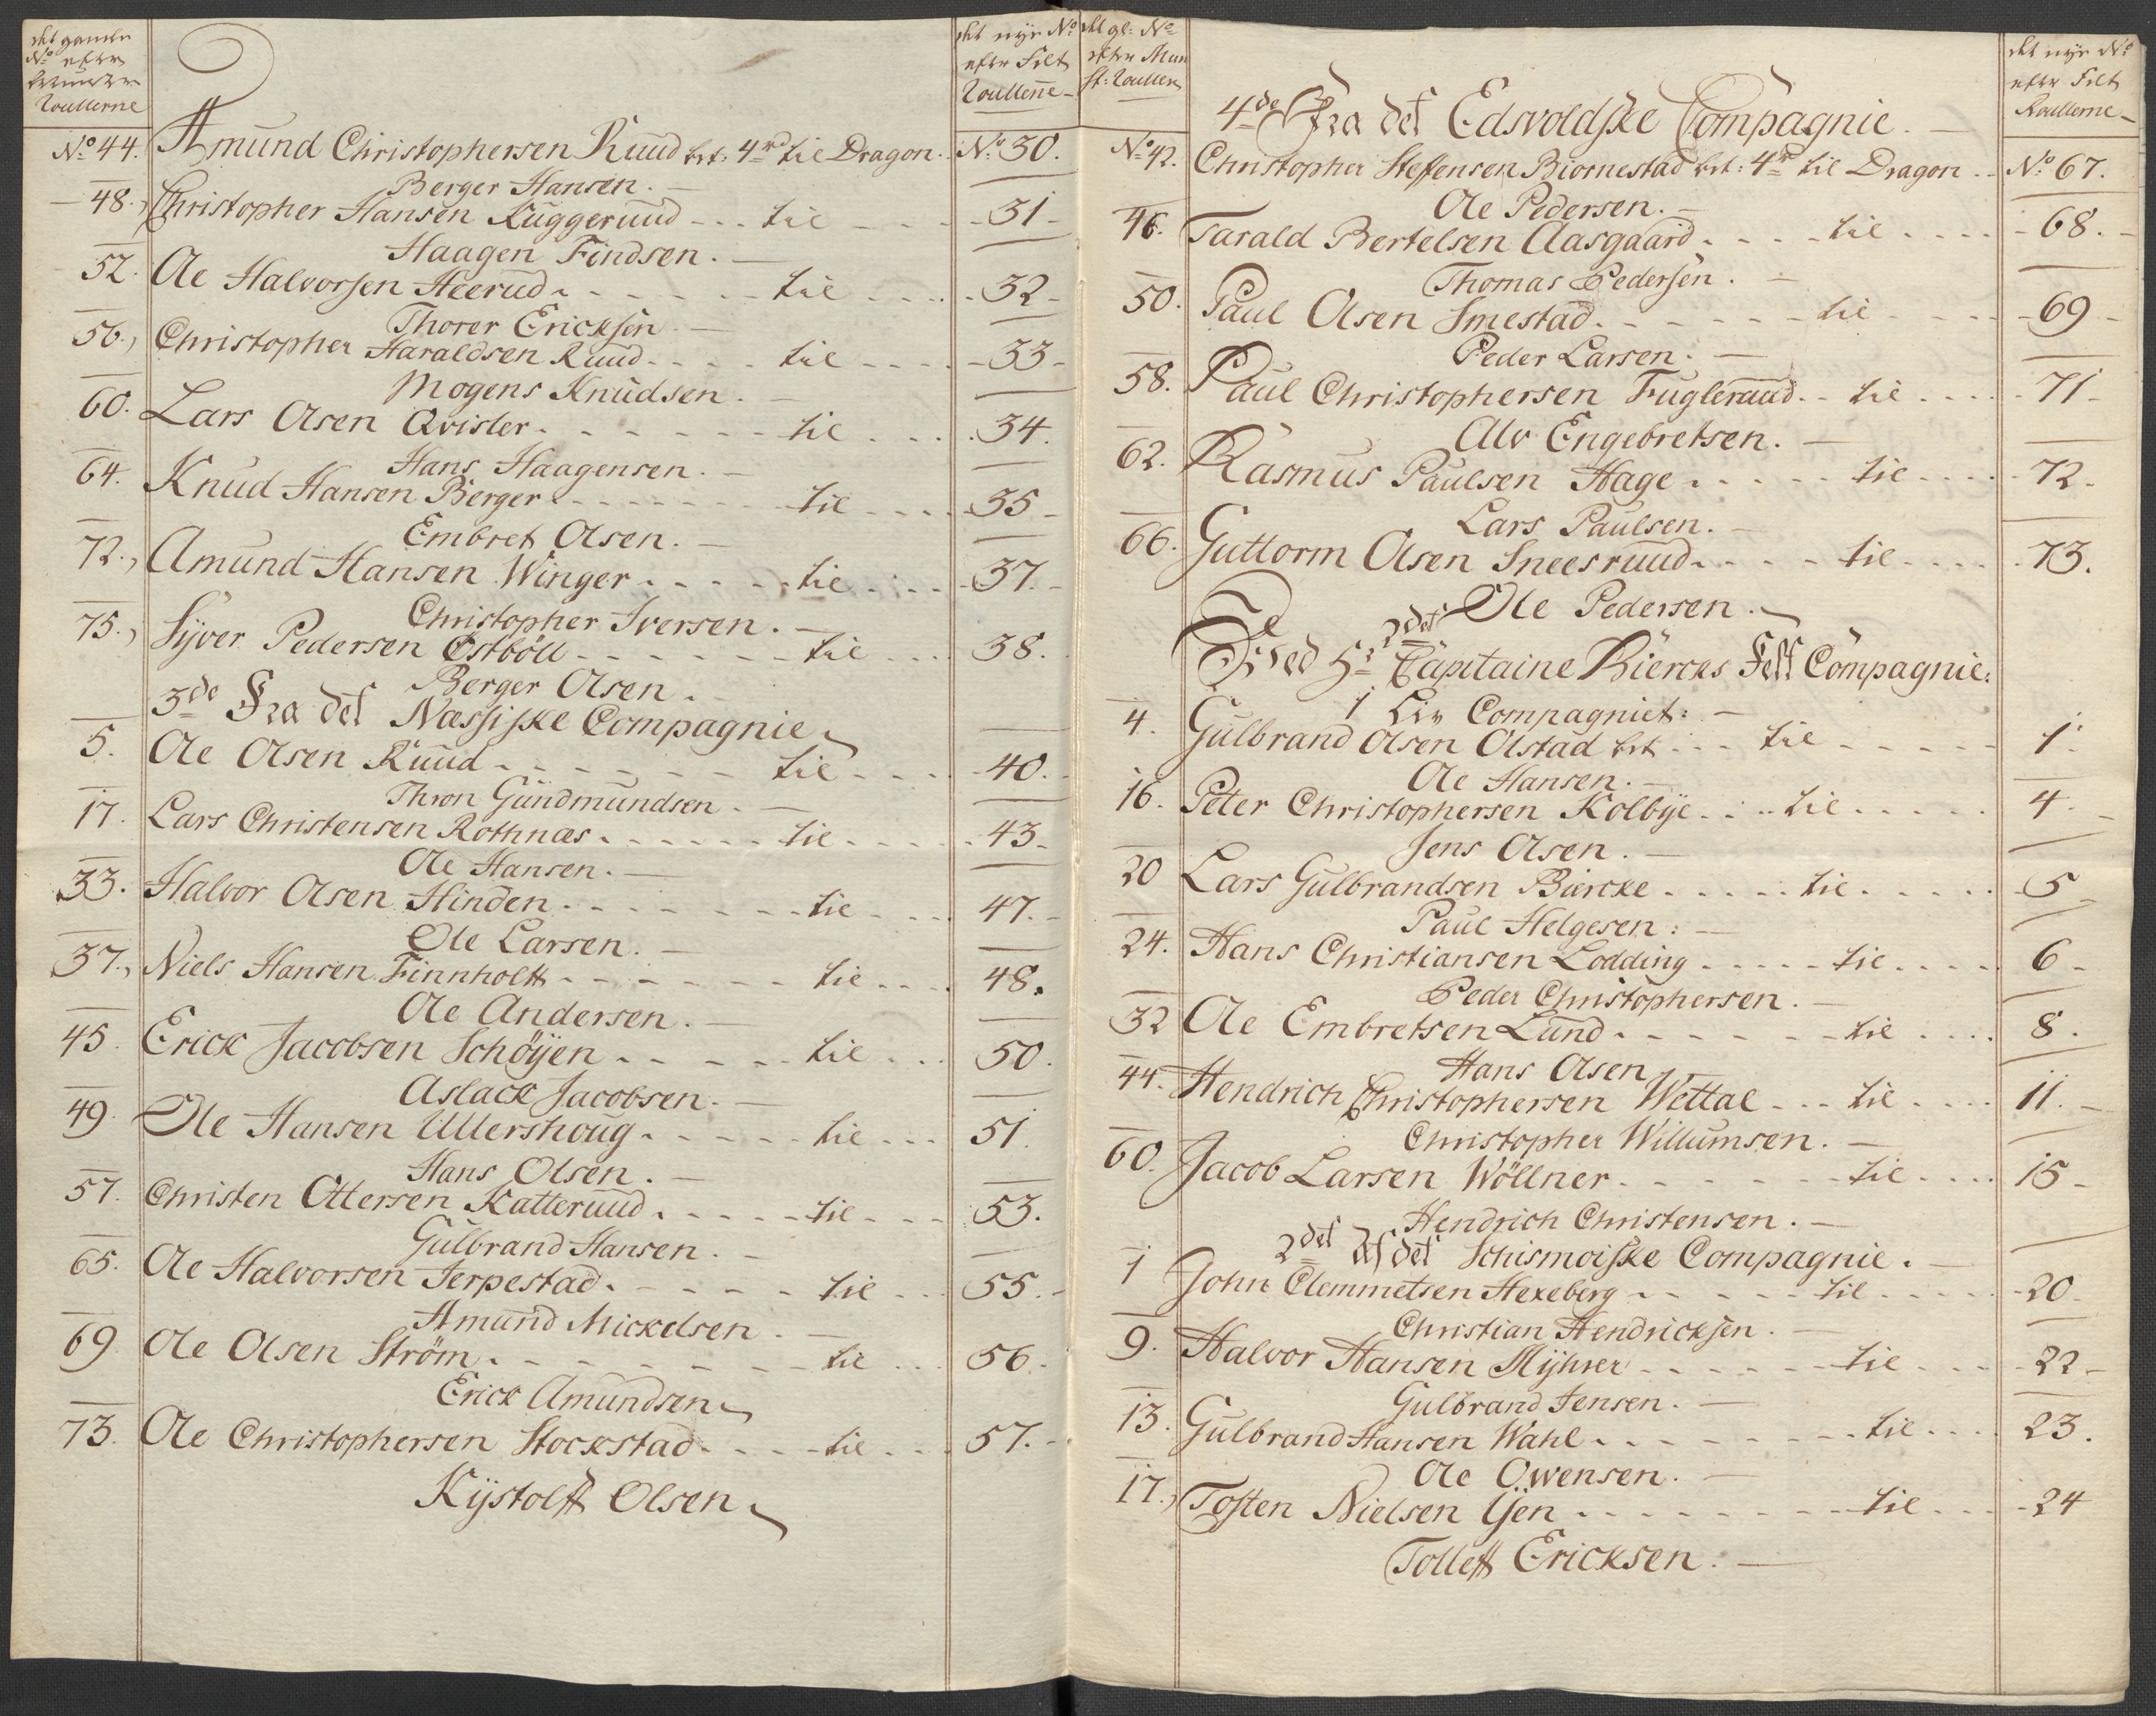 det gamle
No efter
Roullerne
det nye No
efter Felt
Roullerne
No 44. Amund Christophersen Ruud brt: 4rd til Dragon. No 30.
Berger Hansen.
48. Christopher Hansen Kuggeruud - - til - - 31
Haagen Findsen.
52. Ole Halvorsen Heerud - - til - - 32
Thorer Ericksen
56. Christopher Haraldsen Ruud - - til - - 33
Mogens Knudsen.
60. Lars Olsen Qvisler - - til - - 34.
Hans Haagensen.
64. Knud Hansen Berger - - til - - 35
Embret Olsen.
72. Amund Hansen Winger - - til - - 37.
Christopher Iversen.
75. Syver Pedersen Østbøll - - til - - 38.
Berger Olsen.
3de Fra det Nassiske Compagnie
5. Ole Olsen Ruud - - til - - 40.
Thron Gundmundsen.
17. Lars Christensen Rothnæs - - til - - 43
Ole Hansen.
33. Halvor Olsen Hinden - - til - - 47.
Ole Larsen.
37. Niels Hansen Finnholt - - til - - 48.
Ole Andersen.
45. Erick Jacobsen Schøyen - - til - - 50.
Aslack Jacobsen.
49. Ole Hansen Ullershoug - - til - - 51.
Hans Olsen.
57. Christen Ottersen Katteruud - - til - - 53.
Gulbrand Hansen.
65. Ole Halvorsen Jerpestad - - til - - 55.
Amund Mickelsen.
69 Ole Olsen Strøm - - til - - 56.
Erick Amundsen
73. Ole Christophersen Stockstad - - til - - 57.
Kystolff Olsen
det gl: No
efter Mun
st: Roullen
det nye No
efter Felt
Roullerne
4de Fra det Edsvoldske Compagnie.
No 42. Christopher Steffensen Biornestad brt: 4rd til Dragon - - No 67.
Ole Pedersen.
46. Tarald Bertelsen Aasgaard - - til - - 68.
Thomas Pedersen.
50. Paul Olsen Smestad - - til - - 69
Peder Larsen.
58. Paul Christophersen Fugleruud - - til - - 71
Alv Engebretsen.
62. Rasmus Paulsen Hage - - til - - 72.
Lars Paulsen.
66. Guttorm Olsen Sneesruud - - til - - 73.
Ole Pedersen.
2det
Ved Hr Capitaine Bierckes Felt Compagnie:
1 Liv Compagniet:
4. Gulbrand Olsen Olstad brt - - til - - 1
Ole Hansen.
16. Peter Christophersen Kolbye - - til - - 4
Jens Olsen.
20 Lars Gulbrandsen Biercke - - til - - 5
Paul Helgesen:
24. Hans Christiansen Lodding - - til - - 6
Peder Christophersen.
32 Ole Embretsen Lund - - til - - 8.
Hans Olsen
44. Hendrich Christophersen Wettal - - til - - 11.
Christopher Willumsen.
60. Jacob Larsen Wöllner - - til - - 15
Hendrich Christensen.
2det Af det Schismoiske Compagnie.
1 John Clemmetsen Hexeberg - - til - - 20
Christian Hendricksen.
9. Halvor Hansen Myhrer - - til - - 22
Gulbrand Jensen.
13. Gulbrand Hansen Wahl - - til - - 23.
Ole Owensen.
17. Tosten Nielsen Ijen - - til - - 24
Tolleff Ericksen.